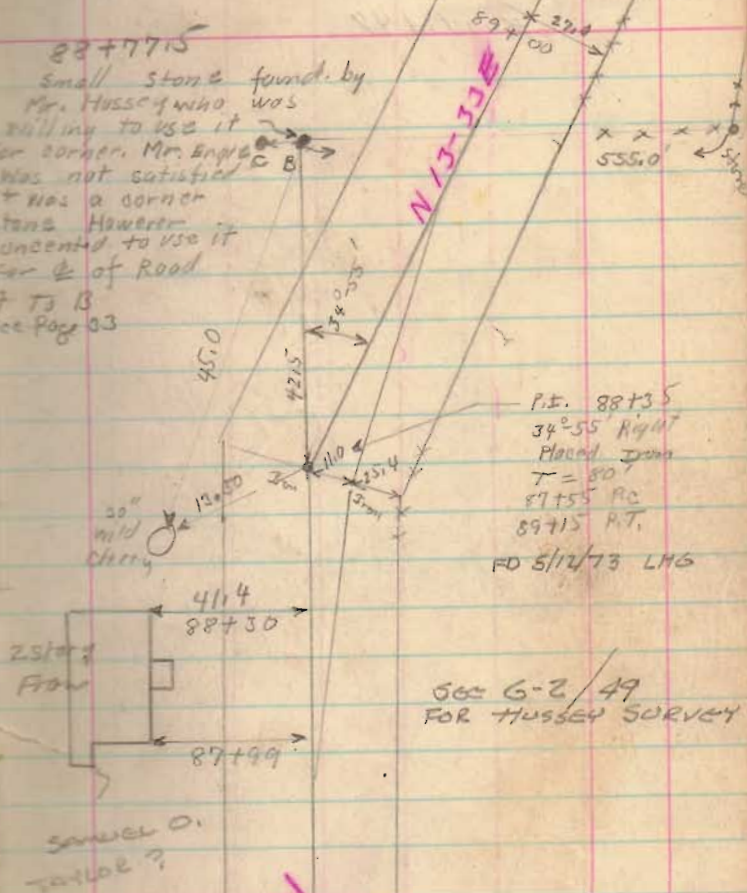 88+77.5
Small Stone found. by
Mr. Hussey who was
willing to use it
or corner. Mr.
was not satisfied
t was a corner
tone However
concented to use it
for ℄ of Road
TJ B
ce Page 33
C B
89+00
27.0
N 13-33E
x x x x
555.0'
34°-55'
45.0
42.5
11.0
25.4
Iron
Iron
P.I. 88+35
34°-55' Right
Placed Iron
T = 80'
87+55 P.C
89+15 P.T.
FD 5/12/73 LHG
13.50
wild
Cherry
41.4
88+30
2 Story
Fram
87+99
SEE G-2/49
FOR HUSSEY SURVEY
SAMUEL O.
TAYLOR ?